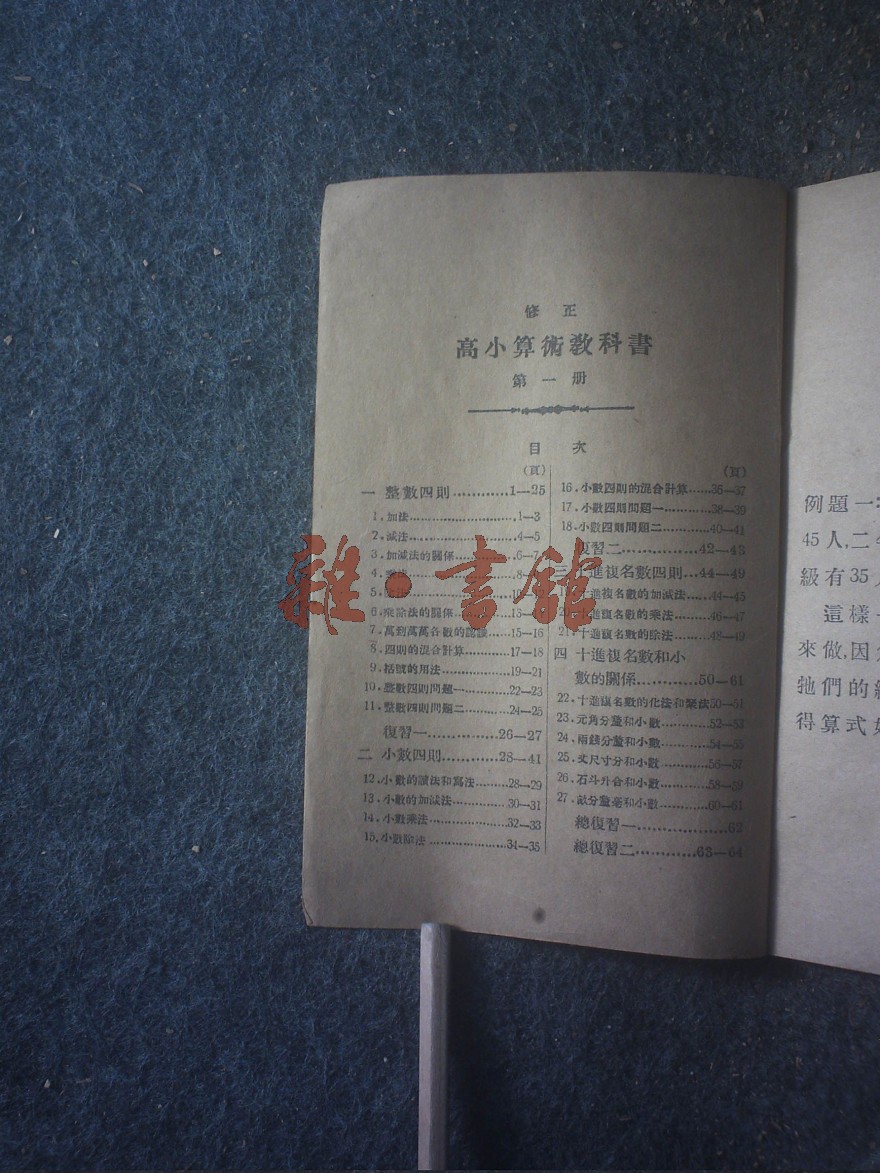 修正
高小算術教科書
第一册
目次
(頁)
一 整數四則............1—25
1.加法....................1—3
2.減法....................4—5
3.加減法的關係............6—7
4.乘法....................8—
5.
6.乘除法的關係............13—
7.萬到萬萬各數的認識......15—16
8.四則的混合計算..........17—18
9.括號的用法..............19—21
10.整數四則問題一.........22—23
11.整數四則問題二.........24—25
復習一...............26—27
二 小數四則............28—41
12.小數的讀法和寫法.......28—29
13.小數的加減法...........30—31
14.小數乘法...............32—33
15.小數除法...............34—35
(頁)
16.小數四則的混合計算.....36—37
17.小數四則問題一.........38—39
18.小數四則問題二.........40—41
復習二...............42—43
三 十進複名數四則...44—49
19.十進複名數的加減法.....44—45
20.十進複名數的乘法.......46—47
21.十進複名數的除法.......48—49
四 十進複名數和小
數的關係............50—61
22.十進複名數的化法和聚法50—51
23.元角分釐和小數.........52—53
24.兩錢分釐和小數.........54—55
25.丈尺寸分和小數.........56—57
26.石斗升合和小數.........58—59
27.畝分釐毫和小數.........60—61
總復習一...............62
總復習二............63—64
例題一:
45人,二
級有35
這樣
來做,因
牠們的
得算式
雜·書館